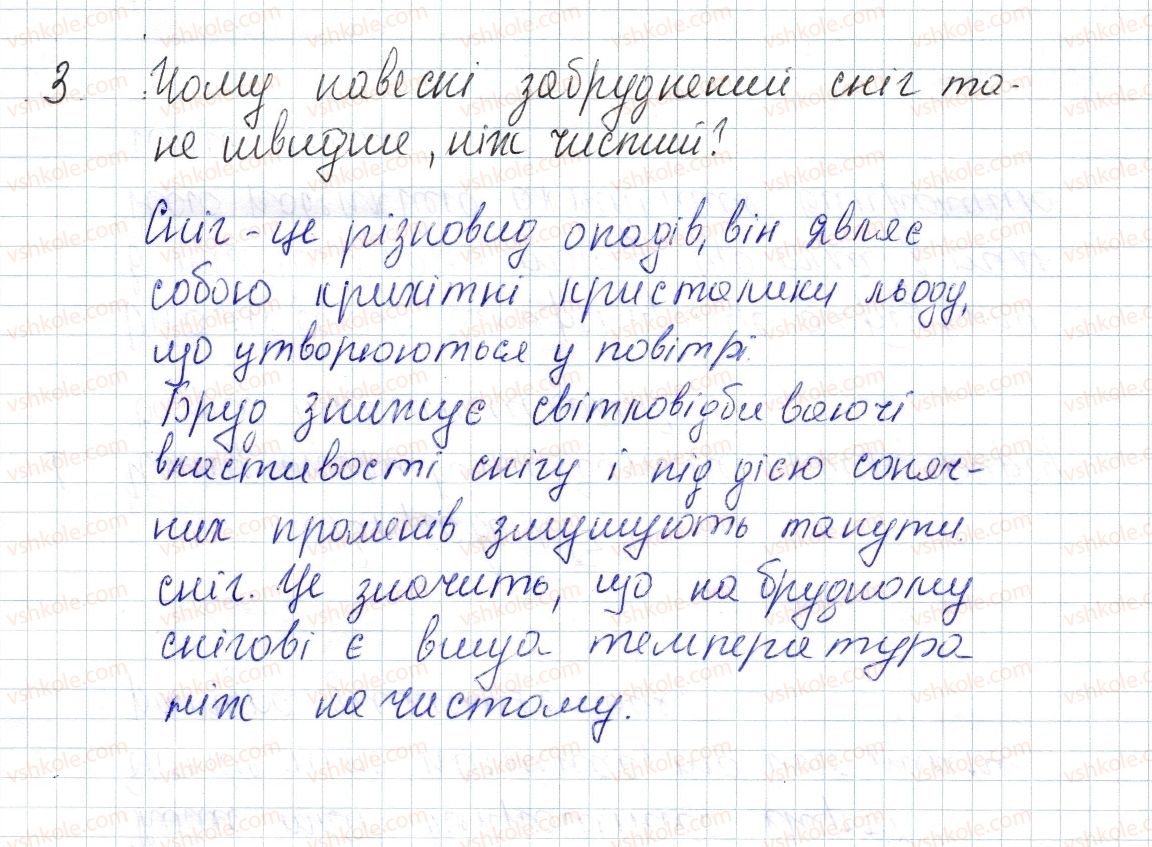 3. Чому навесні забруднений сніг та-
не швидше, ніж чистий?
Сніг - це різновид опадів, він являє
собою крихітні кристалики льоду,
що утворюються у повітрі.
Бруд знижує світловідбиваючі
властивості снігу і під дією соняч-
них променів змушують танути
сніг. Це значить, що на брудному
снігові є вища температура
ніж на чистому.